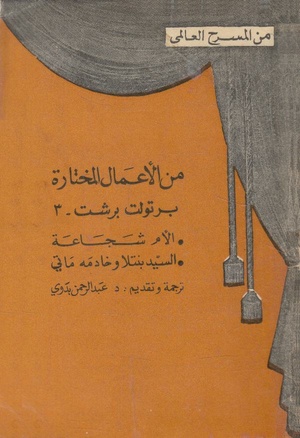 من المسرح العالمى
من الأعمال المختارة
برتولت برشت - ٣
• الأم شجاعة
• السيد بنتلا وخادمه ماتي
ترجمة وتقديم: د عبدالرحمن بدوي